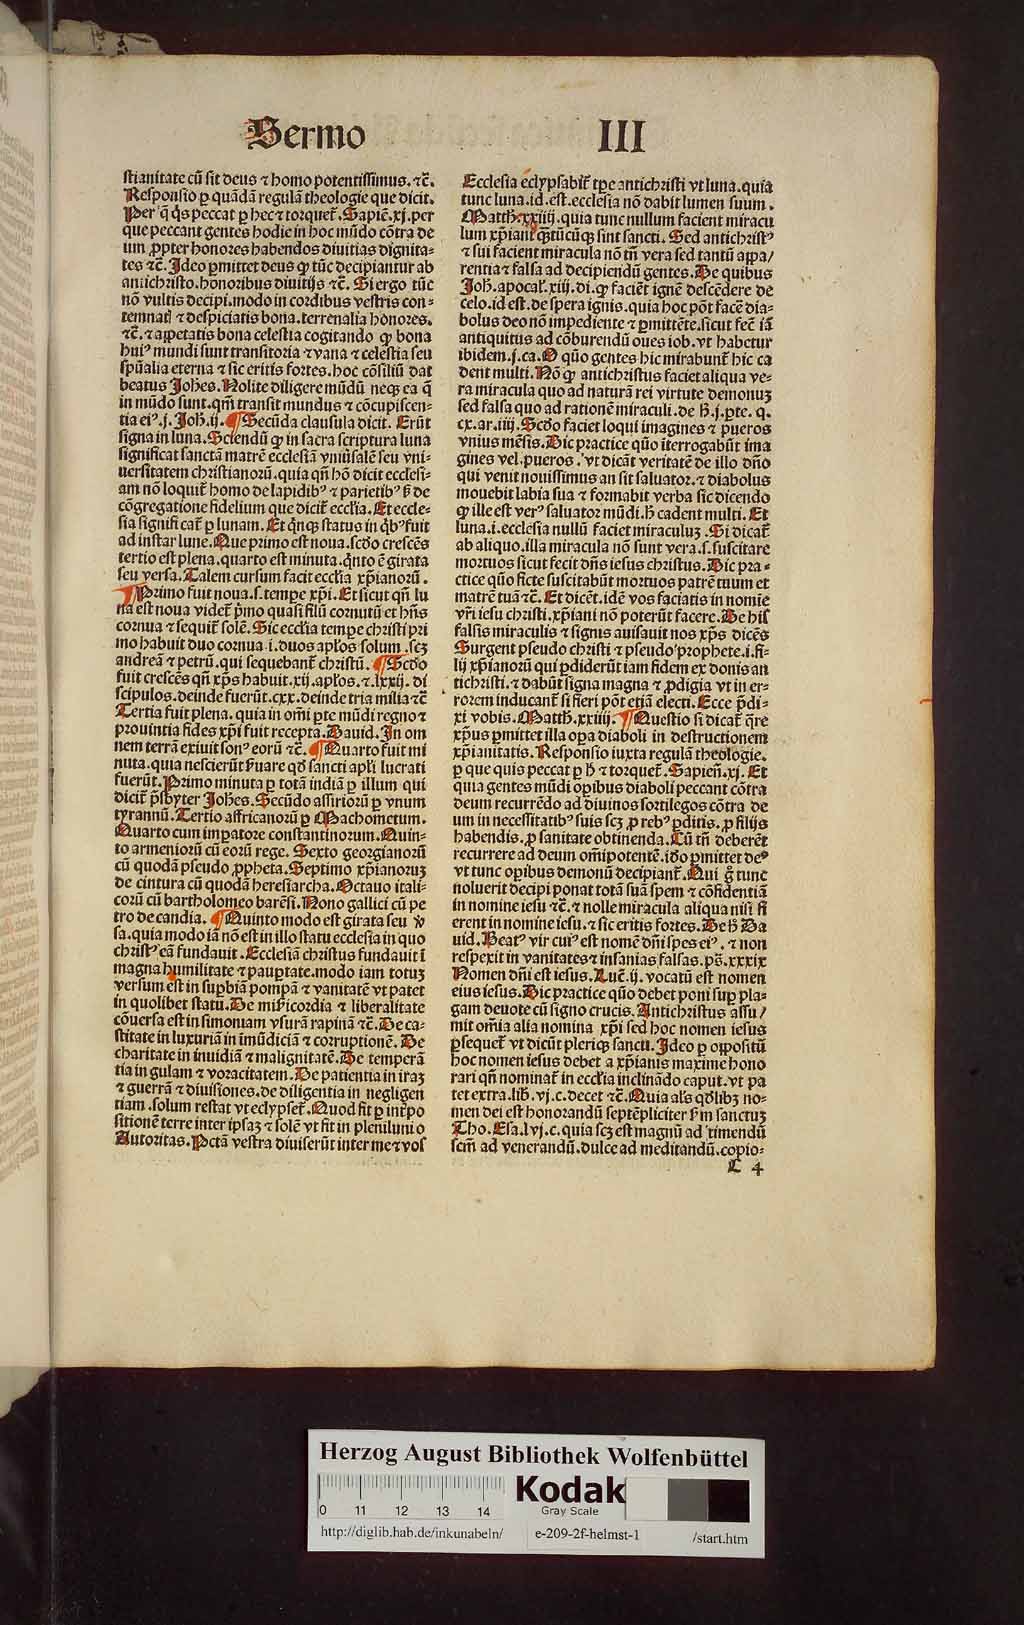 Sermo III
stianitate cū sit deus ⁊ homo potentissimus. ⁊c̄.
Responsio ꝑ quādā regulā theologie que dicit.
Per q̄ q̇s peccat ꝑ hec ⁊ torquet̃. Sapiē. xj. per
que peccant gentes hodie in hoc mūdo cōtra de
um ꝓpter honores habendos diuitias dignita⸗
tes ⁊c̄. Ideo ꝑmittet deus ꝙ tūc decipiantur ab
antichristo. honoribus diuitijs ⁊c̄. Si ergo tūc
nō vultis decipi. modo in cordibus vestris con⸗
temnat̃ ⁊ despiciatis bona. terrenalia honores.
⁊c̄. ⁊ appetatis bona celestia cogitando ꝙ bona
huiꝰ mundi sunt transitoria ⁊ vana ⁊ celestia seu
spūalia eterna ⁊ sic eritis fortes. hoc cōsiliū dat
beatus Johēs. Nolite diligere mūdū neqꝫ ea q̄
in mūdo sunt. qm̄ transit mundus ⁊ cōcupiscen⸗
tia eiꝰ. j. Joh̄. ij. ¶ Secūda clausula dicit. Erūt
signa in luna. Sciendū ꝙ in sacra scriptura luna
significat sanctā matrē ecclesiā vniūsalē seu vni⸗
uersitatem christianorū. quia qn̄ hō dicit ecclesi⸗
am nō loquit̃ homo de lapidibꝰ ⁊ parietibꝰ s̄ de
cōgregatione fidelium que dicit̃ eccl̄ia. Et eccle⸗
sia significat̃ ꝑ lunam. Et q̇nqꝫ status in q̇bꝰ fuit
ad instar lune. Que primo est noua. scd̄o crescēs
tertio est plena. quarto est minuta. q̇nto ē girata
seu versa. Talem cursum facit eccl̄ia xp̄ianorū.
¶ Primo fuit noua. s. tempe xp̄i. Et sicut qn̄ lu
na est noua videt̃ p̄mo quasi filū cornutū et hn̄s
cornua ⁊ sequit̃ solē. Sic eccl̄ia tempe christi pri
mo habuit duo cornua. i. duos apl̄os solum. scꝫ
andreā ⁊ petrū. qui sequebant̃ christū. ¶ Scd̄o
fuit crescēs qn̄ xp̄s habuit. xij. apl̄os. ⁊. lxxij. di
scipulos. deinde fuerūt. cxx. deinde tria milia ⁊c̄
Tertia fuit plena. quia in om̄i ꝑte mūdi regno ⁊
prouintia fides xp̄i fuit recepta. Dauid. In om
nem terrā exiuit sonꝰ eorū ⁊c̄. ¶ Quarto fuit mi
nuta. quia nescierūt ẜuare qd̄ sancti apl̄i lucrati
fuerūt. Primo minuta ꝑ totā indiā ꝑ illum qui
dicit̃ p̄sbyter Johēs. Secūdo assiriorū ꝑ vnum
tyrannū. Tertio affricanorū ꝑ Machometum.
Quarto cum impatore constantinorum. Quin⸗
to armeniorū cū eorū rege. Sexto georgianorū
cū quodā pseudo ꝓpheta. Septimo xp̄ianoruꝫ
de cintura cū quodā heresiarcha. Octauo itali⸗
corū cū bartholomeo barēsi. Nono gallici cū pe
tro de candia. ¶ Quinto modo est girata seu v̄
sa. quia modo iā nō est in illo statu ecclesia in quo
christꝰ eā fundauit. Ecclesiā christus fundauit ī
magna humilitate ⁊ pauꝑtate. modo iam totuꝫ
versum est in supbiā pompā ⁊ vanitatē vt patet
in quolibet statu. De mis̄icordia ⁊ liberalitate
cōuersa est in simoniam vsurā rapinā ⁊c̄. De ca⸗
stitate in luxuriā in imūdiciā ⁊ corruptionē. De
charitate in inuidiā ⁊ malignitatē. De temperā
tia in gulam ⁊ voracitatem. De patientia in iraꝫ
⁊ guerrā ⁊ diuisiones. de diligentia in negligen
tiam. solum restat vt eclypset̃. Quod fit ꝑ int̄po
sitionē terre inter ipsaꝫ ⁊ solē vt fit in plenilunio
Autoritas. Pctā vestra diuiserūt inter me ⁊ vos
Ecclesia eclypsabit̃ tꝑe antichristi vt luna. quia
tunc luna. id. est. ecclesia nō dabit lumen suum.
Matth̄. xxiiij. quia tunc nullum facient miracu
lum xp̄iani q̄ꝫtūcūqꝫ sint sancti. Sed antichristꝰ
⁊ sui facient miracula nō tn̄ vera sed tantū appa/
rentia ⁊ falsa ad decipiendū gentes. De quibus
Joh̄. apocal̄. xiij. di. ꝙ faciēt ignē descēdere de
celo. id est. de spera ignis. quia hoc pōt facē dia⸗
bolus deo nō impediente ⁊ ꝑmittēte. sicut fec̄ iā
antiquitus ad cōburendū oues iob. vt habetur
ibidem. j. ca. O quō gentes hic mirabunt̃ hic ca
dent multi. Nō ꝙ antichristus faciet aliqua ve⸗
ra miracula quo ad naturā rei virtute demonuꝫ
sed falsa quo ad rationē miraculi. de h̄. j. pte. q.
cx. ar. iiij. Scd̄o faciet loqui imagines ⁊ pueros
vnius mēsis. Dic practice quō iterrogabūt ima
gines vel. pueros. vt dicāt veritatē de illo dn̄o
qui venit nouissimus an sit saluator. ⁊ diabolus
mouebit labia sua ⁊ formabit verba sic dicendo
ꝙ ille est verꝰ saluator mūdi. h̄ cadent multi. Et
luna. i. ecclesia nullū faciet miraculuꝫ. Si dicat̃
ab aliquo. illa miracula nō sunt vera. s. suscitare
mortuos sicut fecit dn̄s iesus christus. Dic pra⸗
ctice quō ficte suscitabūt mortuos patrē tuum et
matrē tuā ⁊c̄. Et dicēt. idē vos faciatis in nomīe
vr̄i iesu christi. xp̄iani nō poterūt facere. De his
falsis miraculis ⁊ signis auisauit nos xp̄s dicēs
Surgent pseudo christi ⁊ pseudo prophete. i. fi⸗
lij xp̄ianorū qui ꝑdiderūt iam fidem ex donis an
tichristi. ⁊ dabūt signa magna ⁊ ꝓdigia vt in er⸗
rorem inducant̃ si fieri pōt etiā electi. Ecce p̄di⸗
xi vobis. Matth̄. xxiiij. ¶ Questio si dicat̃ q̄re
xp̄us ꝑmittet illa oꝑa diaboli in destructionem
xp̄ianitatis. Responsio iuxta regulā theologie.
ꝑ que quis peccat ꝑ h̄ ⁊ torquet̃. Sapien̄. xj. Et
quia gentes mūdi oꝑibus diaboli peccant cōtra
deum recurrēdo ad diuinos sortilegos cōtra de
um in necessitatibꝰ suis scꝫ ꝓ rebꝰ ꝑditis. ꝓ filijs
habendis. ꝓ sanitate obtinenda. Cū tn̄ deberēt
recurrere ad deum om̄ipotentē. id̄o ꝑmittet deꝰ
vt tunc oꝑibus demonū decipiant̃. Qui g̊ tunc
noluerit decipi ponat totā suā spem ⁊ cōfidentiā
in nomine iesu ⁊c̄. ⁊ nolle miracula aliqua nisi fi
erent in nomine iesu. ⁊ sic eritis fortes. De h̄ Da
uid. Beatꝰ vir cuiꝰ est nomē dn̄i spes eiꝰ. ⁊ non
respexit in vanitates ⁊ insanias falsas. ps̄. xxxix
Nomen dn̄i est iesus. Luc̄. ij. vocatū est nomen
eius iesus. Dic practice quō debet poni suꝑ pla⸗
gam deuote cū signo crucis. Antichristus assu/
mit om̄ia alia nomina xp̄i sed hoc nomen iesus
ꝑsequet̃ vt dicūt pleriqꝫ sancti. Ideo ꝑ oppositū
hoc nomen iesus debet a xp̄ianis maxime hono
rari qn̄ nominat̃ in eccl̄ia inclinādo caput. vt pa
tet extra. lib̄. vj. c. decet ⁊c̄. Quia al̄s qd̄libꝫ no⸗
men dei est honorandū septēpliciter ẜm sanctuꝫ
Tho. Esa. lvj. c. quia scꝫ est magnū ad timendū
scm̄ ad venerandū. dulce ad meditandū. copio⸗
C 4
Herzog August Bibliothek Wolfenbüttel
0 11 12 13 14
Kodak
Gray Scale
http://diglib.hab.de/inkunabeln/ e-209-2f-helmst-1 /start.htm